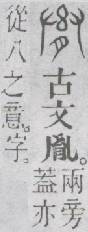 古文胤。兩旁
蓋亦
從八之意。字。